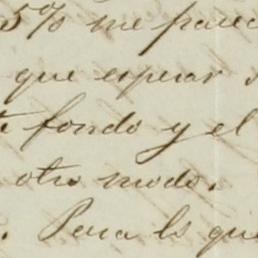 5% me parec
que esperar
fondo y el
otro modo.
. Pera ls que